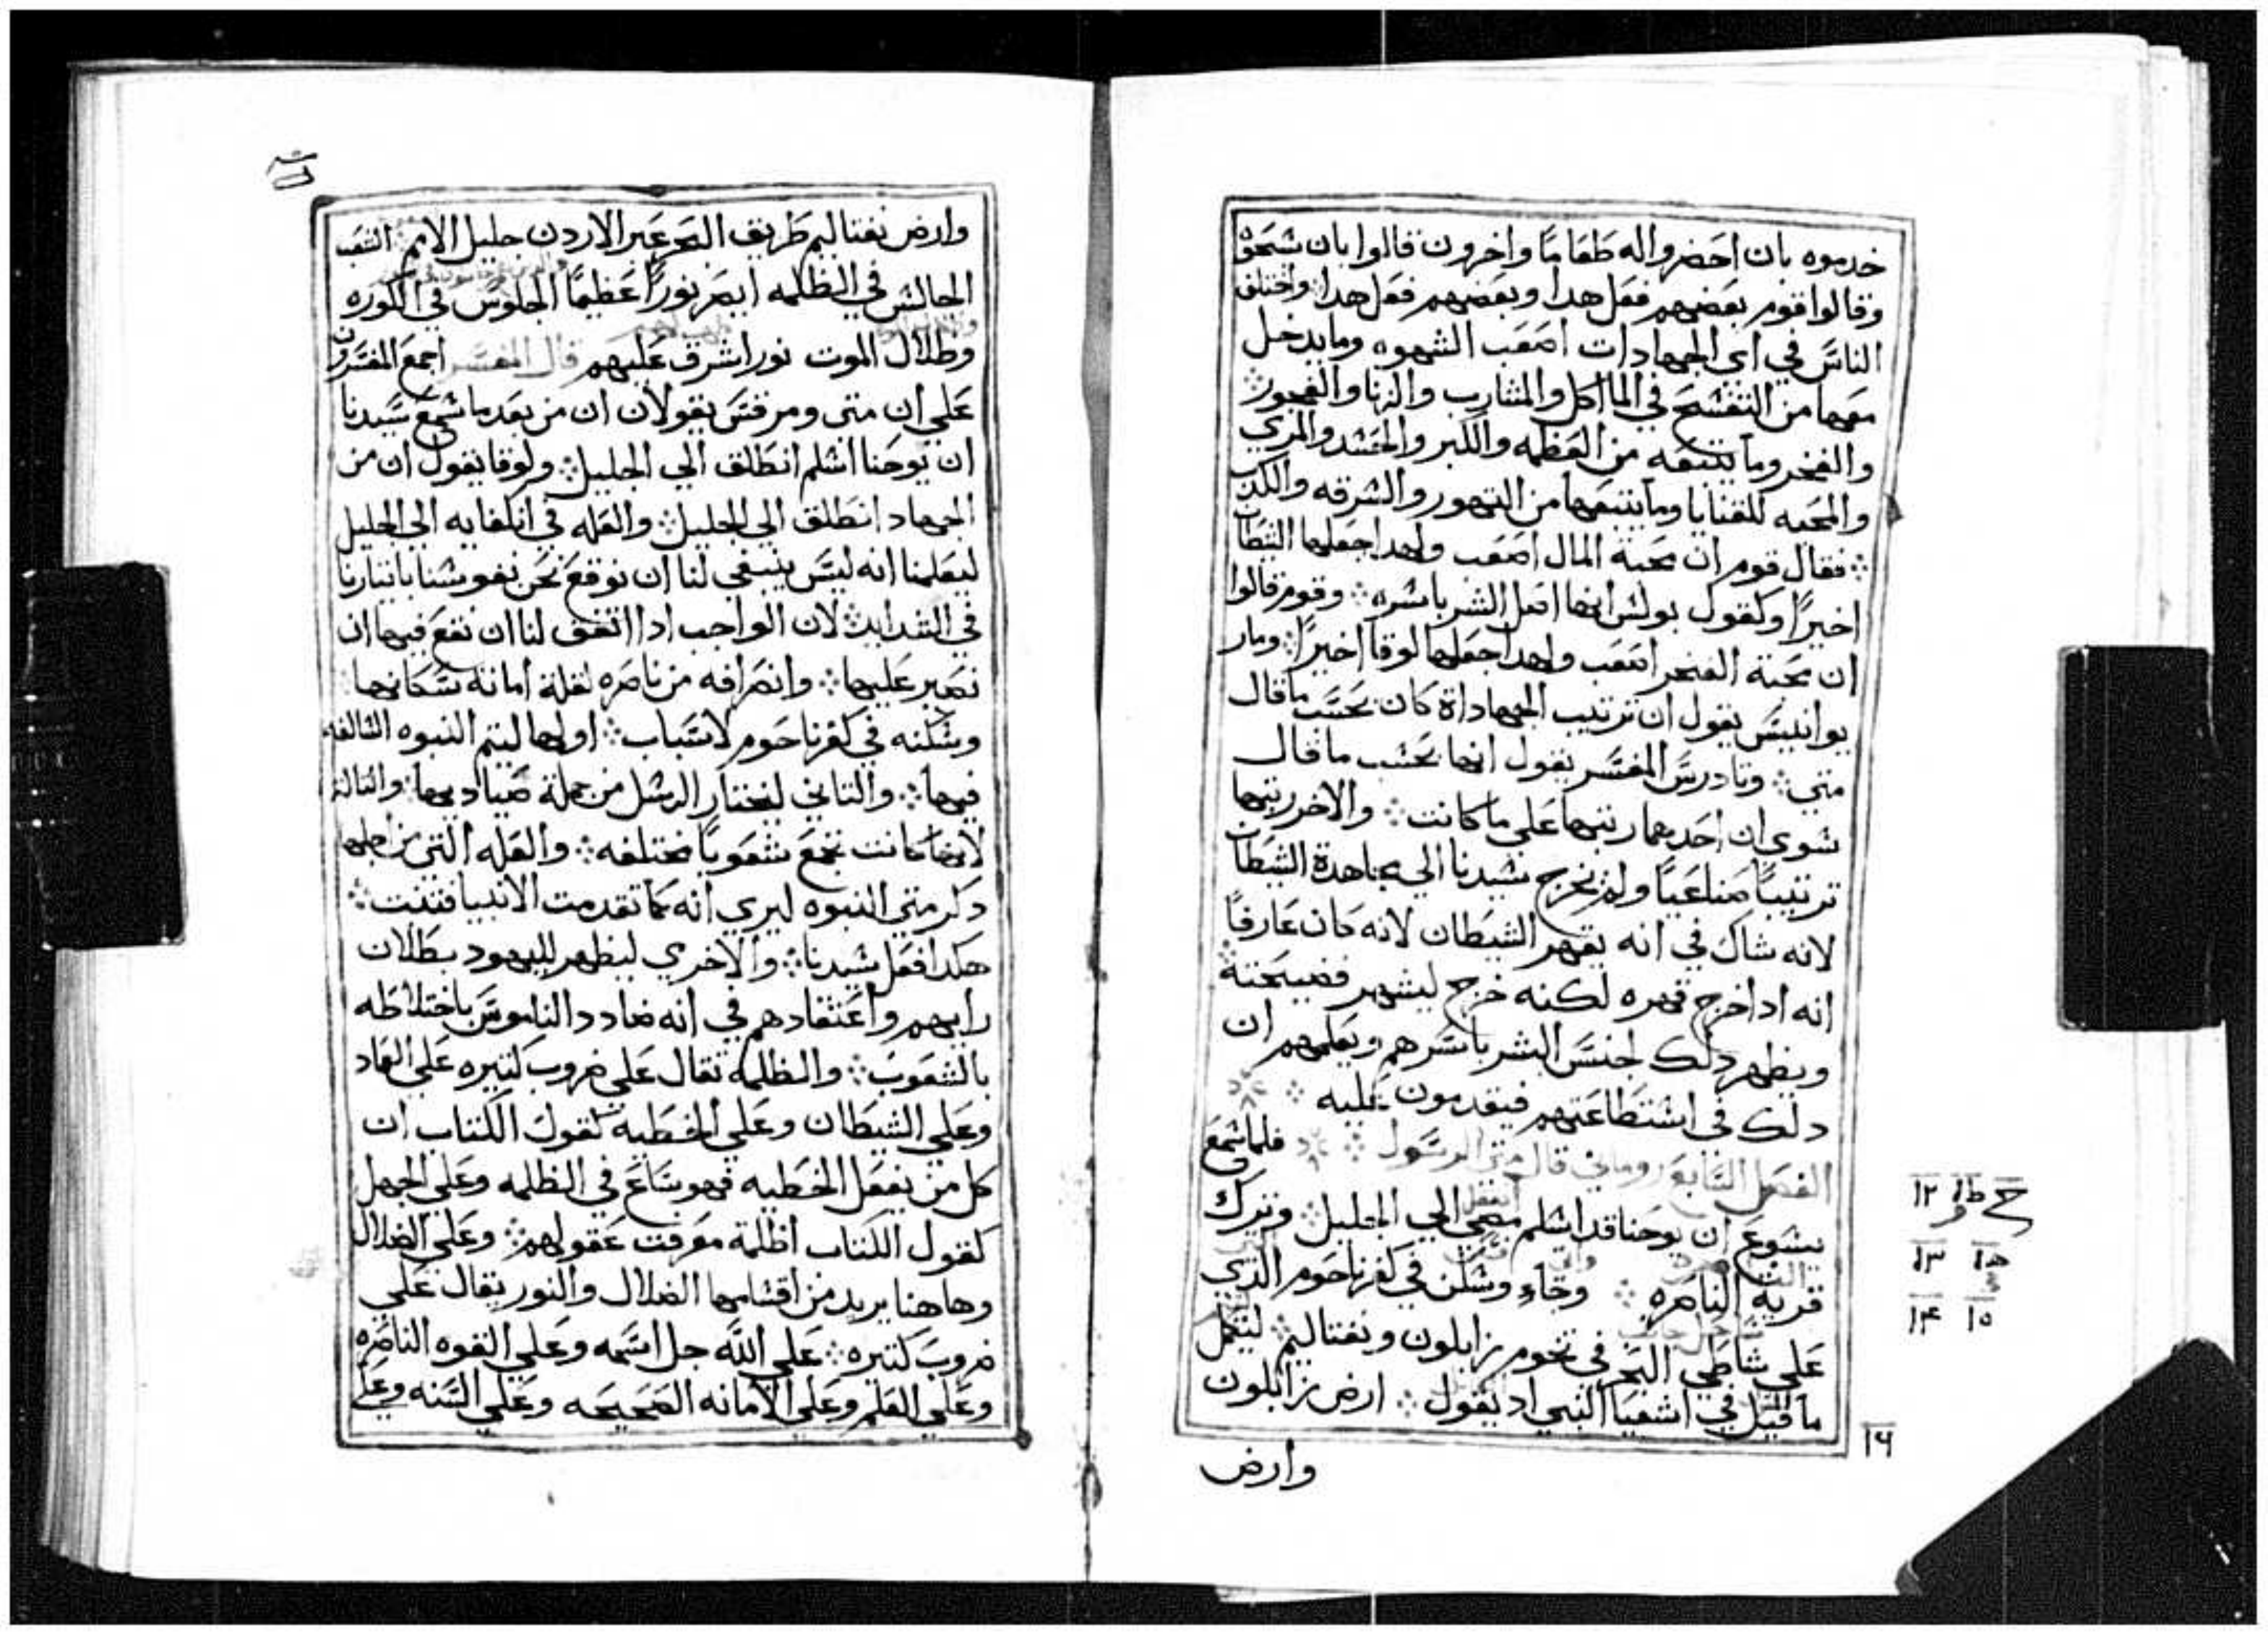 خدموه بان احضروا له طعاما واخرون قالوا بان شبحوه
وقالوا قوم بعضهم فعل هدا وبعضهم فعل هدا واختلف
الناس في اي الجهادات اصعب الشهوه وما يدخل
معها من التفسح في الماكل والمشارب والزنا والفجور
والفخر وما يتبعه من العظمه والكبر والحسد والمري
والمحبه للقنايا وما يتبعها من التهور والسرقه والكدب
فقال قوم ان محبة المال اصعب ولهدا جعلها الشيطان
اخيرًا وكقول بولس انها اصل الشر باسره وقوم قالوا
ان محبة الفخر اصعب ولهدا جعلها لوقا اخيرًا ومار
يوانيس يقول ان ترتيب الجهاداة كان بحسب ما قال
متي وتادرس المفسر يقول انها بحسب ما قال
سوي ان احدهما رتبها علي ما كانت والاخر رتبها
ترتيبًا صناعيًا ولم يخرج سيدنا الي مجاهدة الشيطان
لانه شاك في انه يقهر الشيطان لانه كان عارفًا
انه ادا خرج قهره لكنه خرج ليشهر فضيحته
ويظهر دلك لجنس البشر باسرهم ويعلمهم ان
دلك في استطاعتهم فيقدمون عليه
الفصل السابع روماني قال متي الرسول فلما سمع
يسوع ان يوحنا قد اسلم مضي الي الجليل وترك
قرية الناصره وجاء وسكن في كفرناحوم الذي
علي شاطي البحر في تخوم زابلون ونفتاليم ليكمل
ما قيل في اشعيا النبي اد يقول ارض زابلون
وارض
١٢
١٣
١٤ ١٥
١٦
وارض نفتاليم طريق البحر عبر الاردن جليل الامم الشعب
الجالس في الظلمه ابصر نورًا عظيمًا الجلوس في الكوره
وظلال الموت نور اشرق عليهم قال المفسر اجمع المفسرون
علي ان متي ومرقس يقولان ان من بعد ما سمع سيدنا
ان يوحنا اسلم انطلق الي الجليل ولوقا يقول ان من
الجهاد انطلق الي الجليل والعله في انكفايه الي الجليل
ليعلمنا انه ليس ينبغي لنا ان نوقع نحن نفوسنا باتيارنا
في الشدايد لان الواجب ادا اتفق لنا ان نقع فيها ان
نصبر عليها وانصرافه من ناصره لقلة امانة سكانها
وسكنه في كفرناحوم لاسباب اولها ليتم النبوه السالفه
فيها والتاني ليختار الرسل من جملة صياديها والتالت
لانها كانت تجمع شعوبًا مختلفه والعله التي من اجلها
دكر متي النبوه ليري انه كما تقدمت الانبيا فتنبت
هكدا فعل سيدنا والاخري ليظهر لليهود بطلان
رايهم واعتقادهم في انه مضادد الناموس باختلاطه
بالشعوب والظلمه تقال علي ضروب كتيره علي العاد
وعلي الشيطان وعلي الخطيه كقول الكتاب ان
كل من يفعل الخطيه فهو ساع في الظلمه وعلي الجهل
كقول الكتاب اظلمة معرفت عقولهم وعلي الضلال
وهاهنا يريد من اقسامها الضلال والنور يقال علي
ضروب كتيره علي الله جل اسمه وعلي القوه الناصره
وعلي العلم وعلي الامانه الصحيحه وعلي السنه وعلي